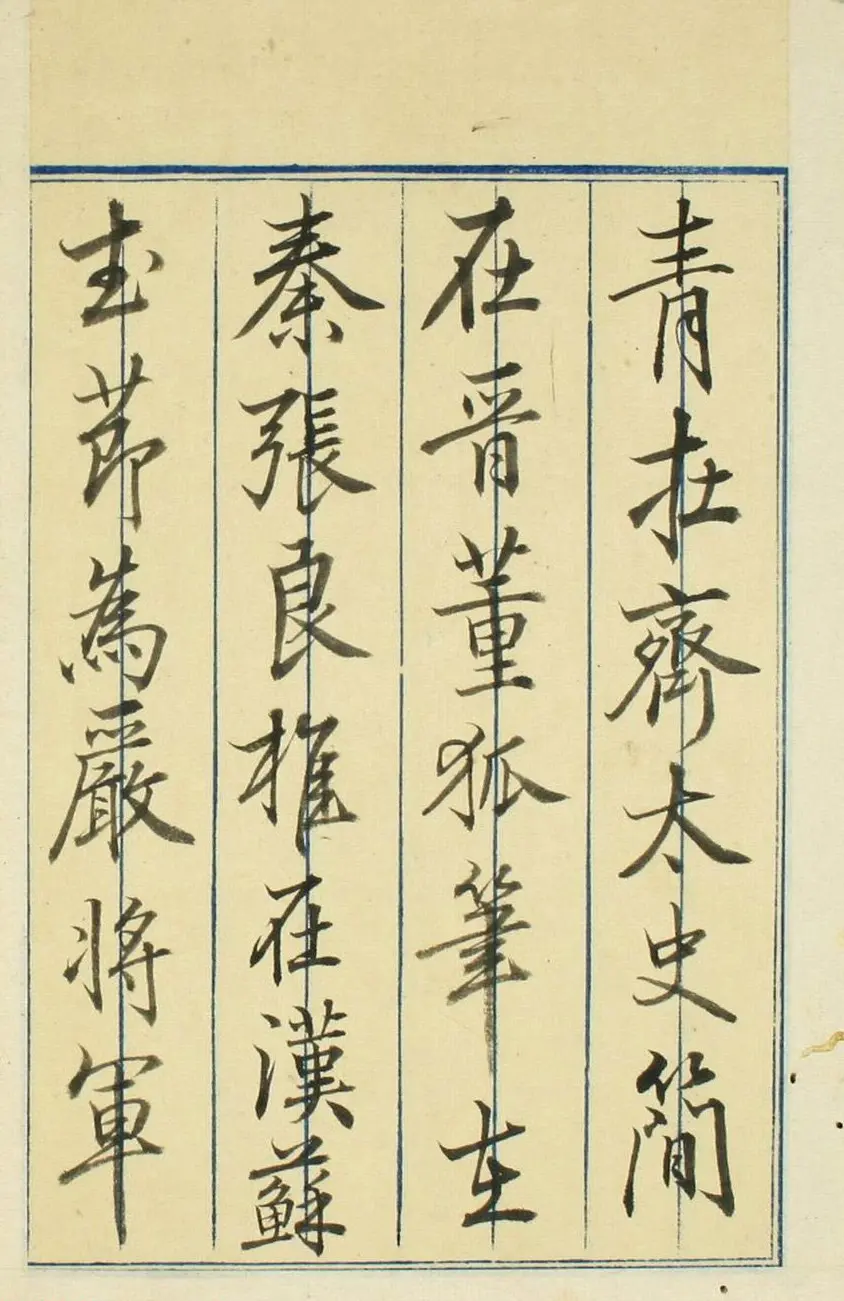 青在齊太史簡
在晉董狐筆在
秦張良椎在漢蘇
武節為嚴將軍